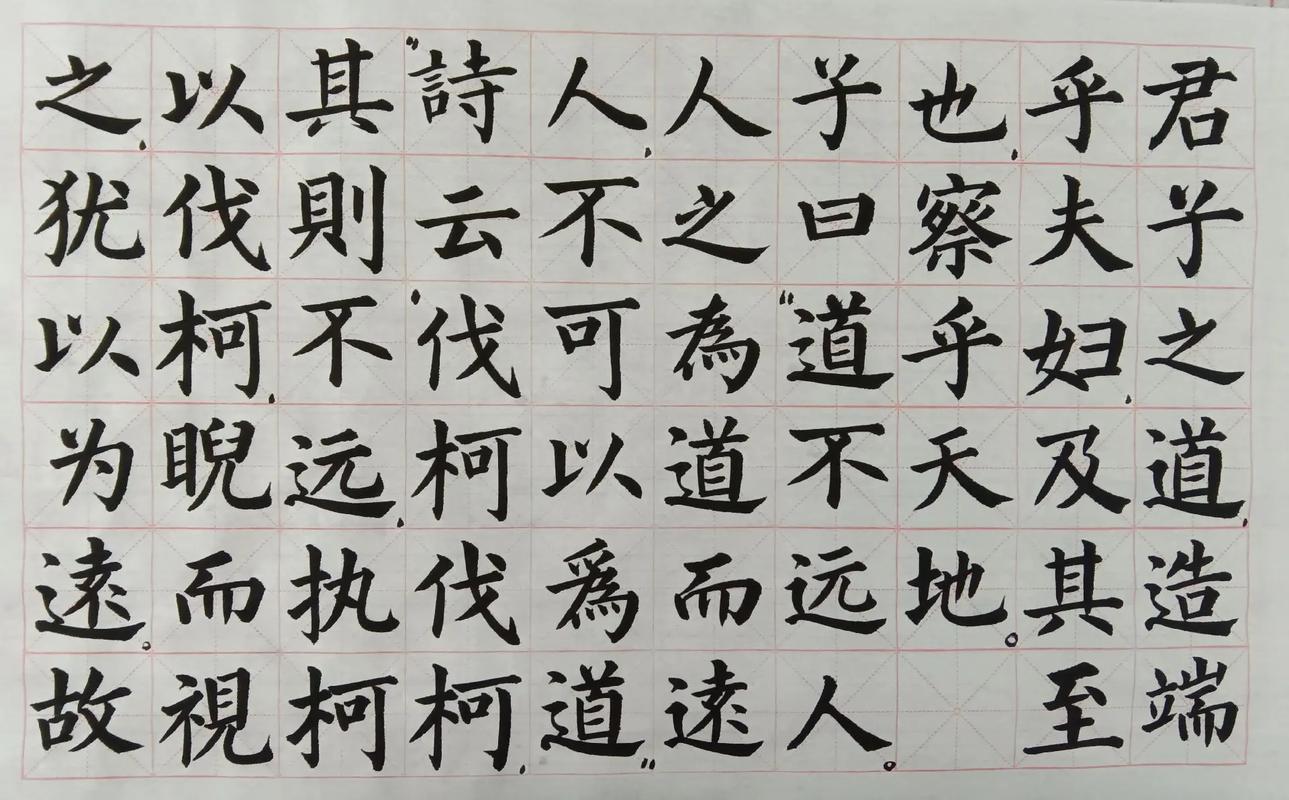 君子之道,造端
乎夫妇,及其至
也,察乎天地。
子曰"道不远人。
人之為道而遠
人,不可以爲道"
"詩云'伐柯伐柯,
其則不远,执柯
以伐柯,睨而視
之,犹以为遠。故